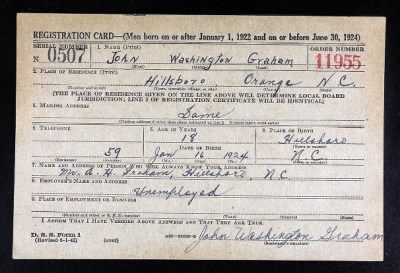 REGISTRATION CARD—(Men born on or after January 1, 1922 and on or before June 30, 1924)
SERIAL NUMBER 1. NAME (Print) ORDER NUMBER
N 0507 John Washington Graham 11955
2. PLACE OF RESIDENCE (Print)
Hillsboro Orange N.C.
[THE PLACE OF RESIDENCE GIVEN ON THE LINE ABOVE WILL DETERMINE LOCAL BOARD
JURISDICTION; LINE 2 OF REGISTRATION CERTIFICATE WILL BE IDENTICAL]
3. MAILING ADDRESS
Same
4. TELEPHONE 5. AGE IN YEARS 6. PLACE OF BIRTH
18 Hillsboro
DATE OF BIRTH
59 Jan 16 1924 N.C.
7. NAME AND ADDRESS OF PERSON WHO WILL ALWAYS KNOW YOUR ADDRESS
A. H. Graham, Hillsboro, N.C.
8. EMPLOYER'S NAME AND ADDRESS
Unemployed
9. PLACE OF EMPLOYMENT OR BUSINESS
I AFFIRM THAT I HAVE VERIFIED ABOVE ANSWERS AND THAT THEY ARE TRUE.
D. S. S. Form 1
(Revised 6-1-42) (over)
John Washington Graham